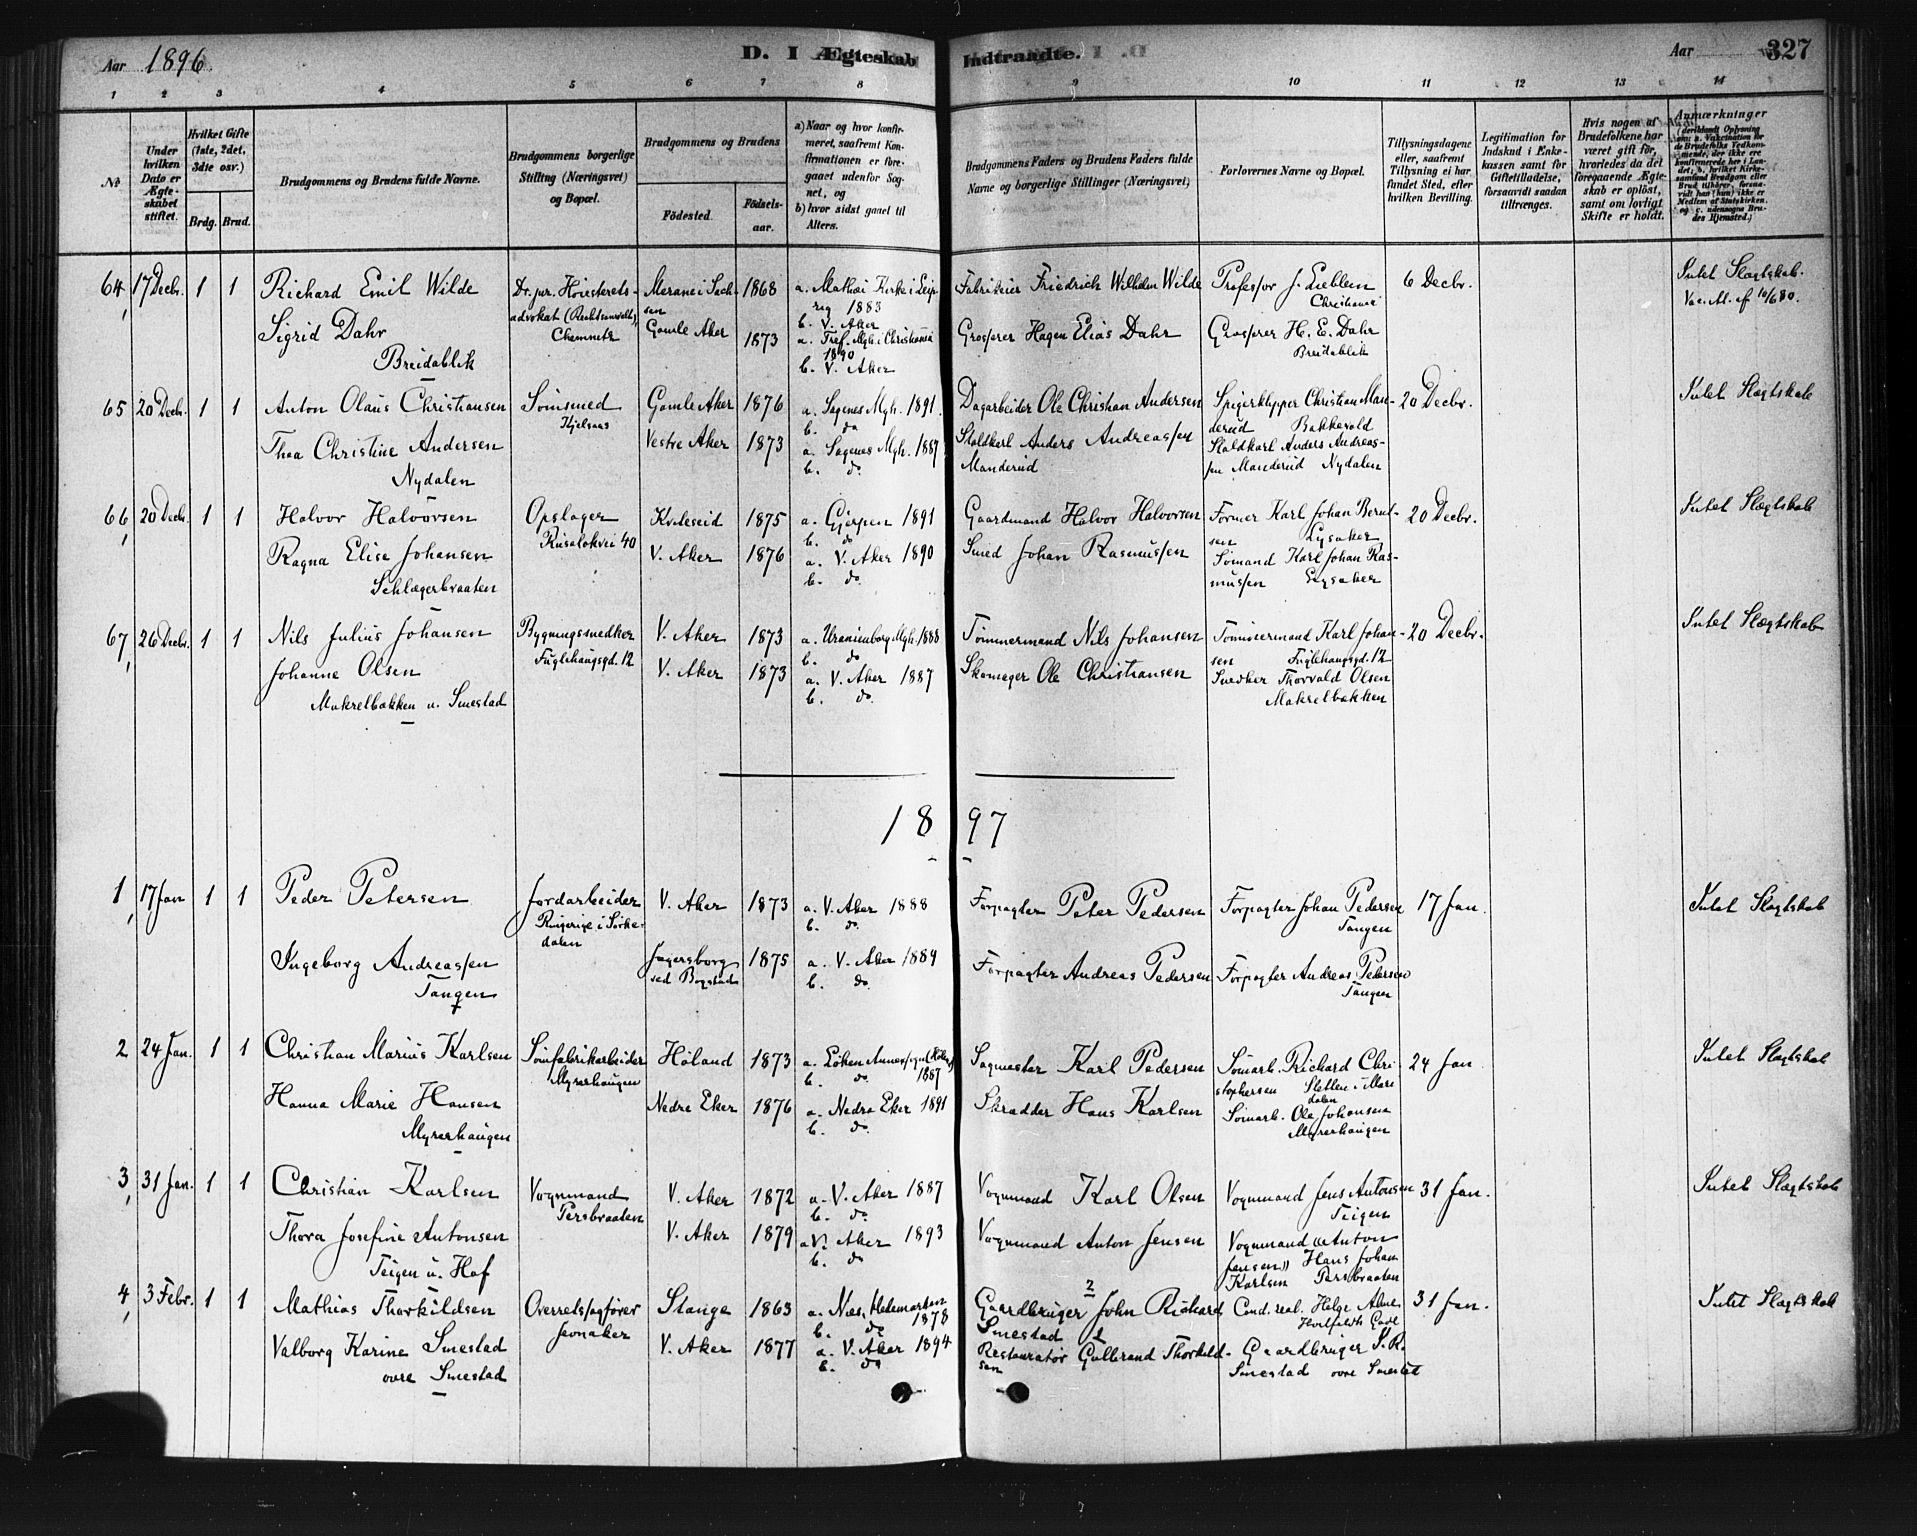 Aar 1896.
D. I Ægteskab Indtraadte.
Aar 327
1 2 3 4 5 6 7 8 9 10 11 12 13 14
No
Under hvilken Dato er Ægteskabet stiftet.
Hvilket Gifte (1ste, 2det, 3die osv.)
Brdg. Brud.
Brudgommens og Brudens fulde Navne.
Brudgommens borgerlige Stilling (Næringsvei) og Bopæl.
Brudgommens og Brudens
Födested. Födselsaar.
a) Naar og hvor konfirmeret, saafremt Konfirmationen er foregaaet udenfor Sognet, og
b) hvor sidst gaaet til Alters.
Brudgommens Faders og Brudens Faders fulde Navne og borgerlige Stillinger (Næringsvei)
Forlovernes Navne og Bopæl.
Tillysningsdagene eller, saafremt Tillysning ei har fundet Sted, efter hvilken Bevilling.
Legitimation for Indskud i Enkekassen samt for Giftetilladelse, forsaavidt saadan tiltrænges.
Hvis nogen af Brudefolkene har været gift før, hvorledes da det foregaaende Ægteskab er oplöst, samt om lovligt Skifte er holdt.
Anmærkninger
64, 17 Decbr. 1 1 Richard Emil Wilde
Dr. jur. Höiesteretsadvokat (Rechtsanwalt), Chemnitz
Merane i Sachsen 1868
a. Mathæi Kirke i Leipzig 1883
b. V. Aker
Fabrikeier Friedrich Wilhelm Wilde
Professor J. Lieblein Christiania
6 Decbr.
Intet Slægtskab.
Vac. At. af 10/6 80.
Sigrid Dahr
Breidablik
Gamle Aker 1873
a. Tref. Mgh. i Christiania 1890
b. V. Aker
Grosserer Hagen Elias Dahr
Grosserer H. E. Dahr
Breidablik
65 20 Decbr. 1 1 Anton Olaus Christiansen
Sömsmed
Kjelsaas
Gamle Aker 1876
a. Sagenes Mgh. 1891.
b. do
Dagarbeider Ole Christian Andersen
Spigerklipper Christian Manderud Bakkevold
20 Decbr.
Intet Slægtskab
Thea Christine Andersen
Nydalen
Vestre Aker 1873
a. Sagenes Mgh. 1887
b. do.
Staldkarl Anders Andreassen Manderud
Staldkarl Anders Andreassen Manderud Nydalen
66, 20 Decbr. 1 1 Halvor Halvorsen
Opslager
Ruselökvei 40
Kviteseid 1875
a. Gjerpen 1891
b. do
Gaardmand Halvor Halvorsen
Former Karl Johan Berntsen Lysaker
20 Decbr.
Intet Slægtskab
Ragna Elise Johansen
Schlægerbraaten
V. Aker 1876
a. V. Aker 1890
b. do.
Smed Johan Rasmussen
Sömand Karl Johan Rasmussen Lysaker
67, 26 Decbr. 1 1 Nils Julius Johansen
Bygningssnedker
Fuglehaugsgd. 12
V. Aker 1873
a. Uranienborg Mgh. 1888
b. do
Tömmermand Nils Johansen
Tömmermand Karl Johansen Fuglehaugsgd. 12
20 Decbr.
Intet Slægtskab
Johanne Olsen
Makrelbakken u. Smestad
V. Aker 1873
a. V. Aker 1887
b. do.
Skomager Ole Christiansen
Snedker Thorvald Olsen
Makrelbakken
1897
1, 17 Jan 1 1 Peder Petersen
Jordarbeider
Ringerige i Sörkedalen
V. Aker 1873
a. V. Aker 1888
b. do.
Forpagter Peter Pedersen
Forpagter Johan Pedersen
Tangen
17 Jan.
Intet Slægtskab
Ingeborg Andreassen
Tangen
Jegersborg ved Bogstad 1875
a. V. Aker 1889
b. do.
Forpagter Andreas Pedersen
Forpagter Andreas Pedersen
Tangen
2 24 Jan. 1 1 Christian Marius Karlsen
Sömfabrikarbeider
Myrerhaugen
Höland 1873
a. Löken Annexsogn (Höland) 1887
b. do.
Sagmester Karl Pedersen
Sömarb. Richard Christophersen Sletten i Maridalen
24 Jan
Intet Slægtskab
Hanna Marie Hansen
Myrerhaugen
Nedre Eker 1876
a. Nedre Eker 1891
b. do.
Skrædder Hans Karlsen
Sömarb. Ole Johansen
Myrerhaugen
3, 31 Jan. 1 1 Christian Karlsen
Vognmand
Persbraaten
V. Aker 1872
a. V. Aker 1887
b. do.
Vognmand Karl Olsen
Vognmand Jens Antonsen
Teigen
31 Jan.
Intet Slægtskab
Thora Josefine Antonsen
Teigen u. Hof
V. Aker 1879
a. V. Aker 1893
b. do
Vognmand Anton Jensen
Vognmand Anton Jensen, Hans Johan Karlsen Persbraaten
4, 3 Febr. 1 1 Mathias Thorkildsen
Overretssagfører
Jevnaker
Stange 1863
a. Næs, Hedemarken 1878
b. do
2
Gaardbruger John Richard Smestad
Cand. real. Helge Alme
Hvitfeldts Gade
31 Jan.
Intet Slægtskab
Valborg Karine Smestad
övre Smestad
V. Aker 1877
a. V. Aker 1894
b. do
1
Restauratør Gulbrand Thorkildsen
Gaardbruger J. R. Smestad övre Smestad